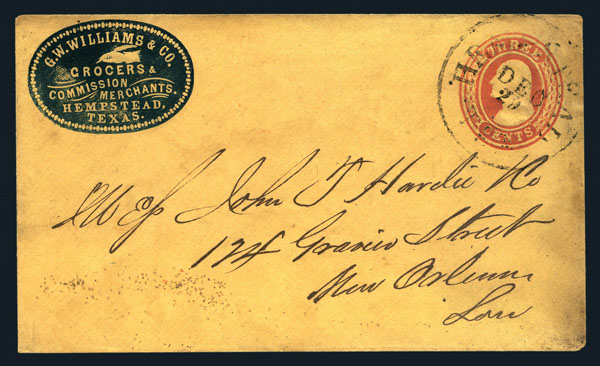 G.W. WILLIAMS & CO.
GROCERS &
COMMISSION
MERCHANTS.
HEMPSTEAD,
TEXAS.
THREE
CENTS
DEC
John T Hardie & Co
124 Gravier Street
New Orleans
Lou